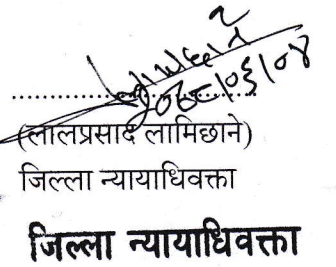 २०७८।०६।०४
(लालप्रसाद लामिछाने)
जिल्ला न्यायाधिवक्ता
जिल्ला न्यायाधिवक्ता